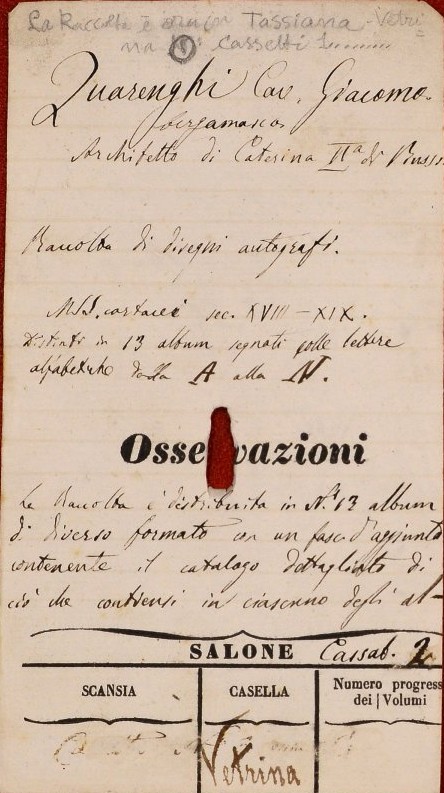 La Raccolta è ora in Tassiana - Vetri=
na Cassetti 1
Quarenghi Cav. Giacomo.
bergamasco
Architetto di Caterina IIª di Russi
Raccolta di disegni autografi.
MSS. cartacei sec. XVIII - XIX.
Distinti in 13 album segnati colle lettere
alfabetiche dalla A alla N.
Osservazioni
La Raccolta è distribuita in N.º 13 album
di diverso formato con un fasc. d'aggiunto
contenente il catalogo dettagliato di
ciò che contiensi in ciascuno degli al-
SALONE Cassab. 2
SCANSIA
CASELLA
Numero progress
dei Volumi
Vetrina